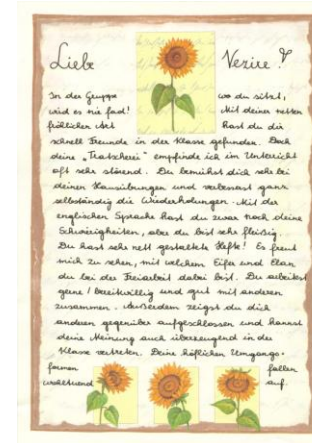 Liebe Vezire!
In der Gruppe wo du sitzt,
wird es nie fad! Mit deiner netten
fröhlichen Art hast du dir
schnell Freunde in der Klasse gefunden. Doch
deine „Tratscherei" empfinde ich im Unterricht
oft sehr störend. Du bemühst dich sehr bei
deinen Hausübungen und verbesserst ganz
selbständig die Wiederholungen. Mit der
englischen Sprache hast du zwar noch kleine
Schwierigkeiten, aber du bist sehr fleißig.
Du hast sehr nett gestaltete Hefte! Es freut
mich zu sehen, mit welchem Eifer und Elan
du bei der Freiarbeit dabei bist. Du arbeitest
gerne / bereitwillig und gut mit anderen
zusammen. Außerdem zeigst du dich
anderen gegenüber aufgeschlossen und kannst
deine Meinung auch überzeugend in der
Klasse vertreten. Deine höflichen Umgangs-
formen fallen
wohltuend auf.